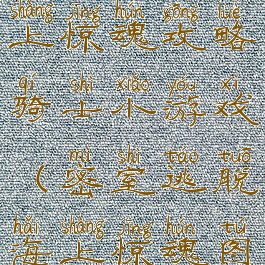 shàng jīng hún gōng lüè
上惊魂攻略
qí shì xiǎo yóu xì
骑士小游戏
mì shì táo tuō
(密室逃脱
hǎi shàng jīng hún tú
海上惊魂图